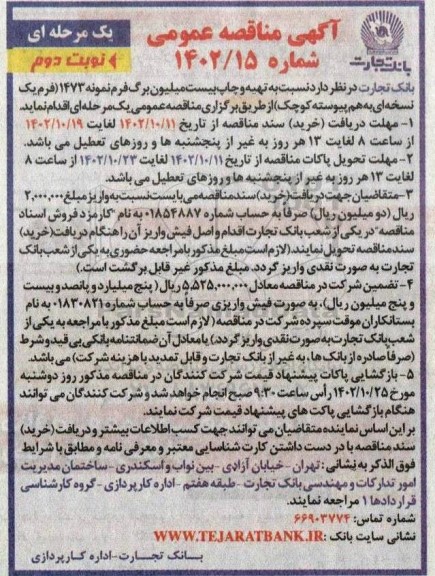 آگهی مناقصه عمومی
شماره ۱۴۰۲/۱۵
یک مرحله ای
نوبت دوم
بانک تجارت
بانک تجارت در نظر دارد نسبت به تهیه و چاپ بیست میلیون برگ فرم نمونه ۱۴۷۳ (فرم یک
نسخه ای به هم پیوسته کوچک) از طریق برگزاری مناقصه عمومی یک مرحله ای اقدام نماید.
۱- مهلت دریافت (خرید) سند مناقصه از تاریخ ۱۴۰۲/۱۰/۱۱ لغایت ۱۴۰۲/۱۰/۱۹
از ساعت ۸ لغایت ۱۳ هر روز به غیر از پنجشنبه ها و روزهای تعطیل می باشد.
۲- مهلت تحویل پاکات مناقصه از تاریخ ۱۴۰۲/۱۰/۱۱ لغایت ۱۴۰۲/۱۰/۲۳ از ساعت ۸
لغایت ۱۳ هر روز به غیر از پنجشنبه ها و روزهای تعطیل می باشد.
۳- متقاضیان جهت دریافت (خرید) سند مناقصه می بایست نسبت به واریز مبلغ ۲,۰۰۰,۰۰۰
ریال (دو میلیون ریال) صرفاً به حساب شماره ۰۱۸۵۴۸۸۷ به نام "کارمزد فروش اسناد
مناقصه" در یکی از شعب بانک تجارت اقدام و اصل فیش واریز آن را هنگام دریافت (خرید)
سند مناقصه تحویل نمایند. (لازم است مبلغ مذکور با مراجعه حضوری به یکی از شعب بانک
تجارت به صورت نقدی واریز گردد. مبلغ مذکور غیر قابل برگشت است.)
۴- تضمین شرکت در مناقصه معادل ۵,۵۲۵,۰۰۰,۰۰۰ ریال (پنج میلیارد و پانصد و بیست
و پنج میلیون ریال)، به صورت فیش واریزی صرفاً به حساب شماره ۰۱۸۳۰۸۲۱ به نام
بستانکاران موقت سپرده شرکت در مناقصه (لازم است مبلغ مذکور با مراجعه به یکی از
شعب بانک تجارت به صورت نقدی واریز گردد.) یا معادل آن ضمانتنامه بانکی بی قید و شرط
(صرفاً صادره از بانک ها، به غیر از بانک تجارت و قابل تمدید با هزینه شرکت) می باشد.
۵- بازگشایی پاکات پیشنهاد قیمت شرکت کنندگان در مناقصه مذکور روز دوشنبه
مورخ ۱۴۰۲/۱۰/۲۵ رأس ساعت ۹:۳۰ صبح انجام خواهد شد و شرکت کنندگان می توانند
هنگام بازگشایی پاکت های پیشنهاد قیمت شرکت نمایند.
بر این اساس نماینده متقاضیان می توانند جهت کسب اطلاعات بیشتر و دریافت (خرید)
سند مناقصه با در دست داشتن کارت شناسایی معتبر و معرفی نامه و مطابق با شرایط
فوق الذکر به نشانی: تهران - خیابان آزادی - بین نواب و اسکندری - ساختمان مدیریت
امور تدارکات و مهندسی بانک تجارت - طبقه هفتم - اداره کارپردازی - گروه کارشناسی
قراردادها ۱ مراجعه نمایند.
شماره تماس: ۶۶۹۰۳۷۷۴
نشانی سایت بانک: WWW.TEJARATBANK.IR
بانک تجارت-اداره کارپردازی